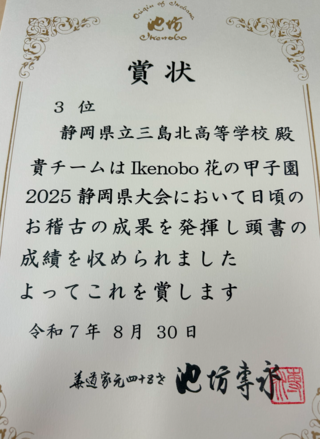 Origin of Ikebana
池坊
Ikenobo
賞状
3 位
静岡県立三島北高等学校 殿
貴チームは Ikenobo 花の甲子園
2025 静岡県大会において日頃の
お稽古の成果を発揮し頭書の
成績を収められました
よってこれを賞します
令和 7 年 8 月 30 日
華道家元四十五世 池坊專永